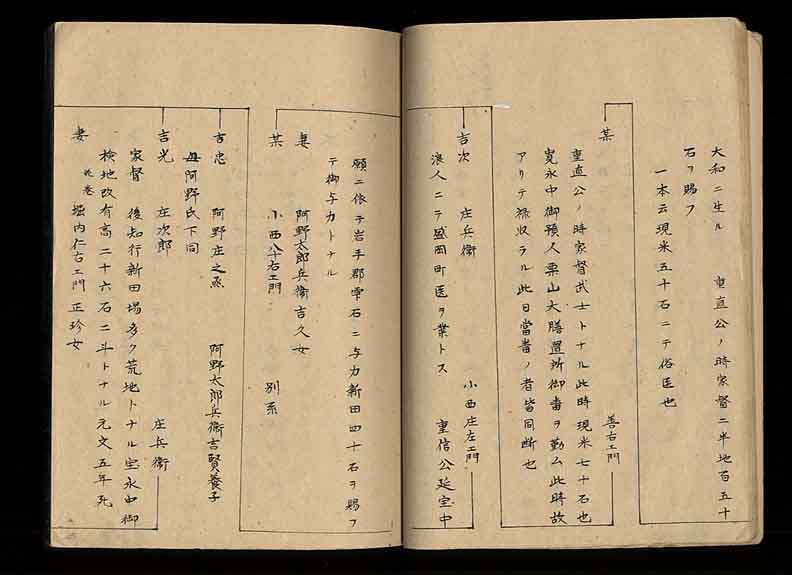 大和ニ生ル　重直公ノ時家督二半地百五十
石ヲ賜フ
一本云現米五十石ニテ俗医也
某　善右エ門
重直公ノ時家督武士トナル此時現米七十石也
寛永中御預人栗山大膳置所御番ヲ勤ム此時故
アリテ禄収ラル此日當番ノ者皆同断也
吉次　庄兵衛　小西庄左エ門
浪人ニテ盛岡町医ヲ業トス　重信公延宝中
願ニ依テ岩手郡雫石ニ与力新田四十石ヲ賜フ
テ御与力トナル
妻　阿野太郎兵衛吉久女
某　小西八十右エ門　別系
吉忠　阿野庄之丞　阿野太郎兵衛吉賢養子
母阿野氏下同
吉光　庄次郎　庄兵衛
家督　後知行新田場多ク荒地トナル宝永中御
検地改有高二十六石二斗トナル元文五年死
妻　堀内仁右エ門正珍女